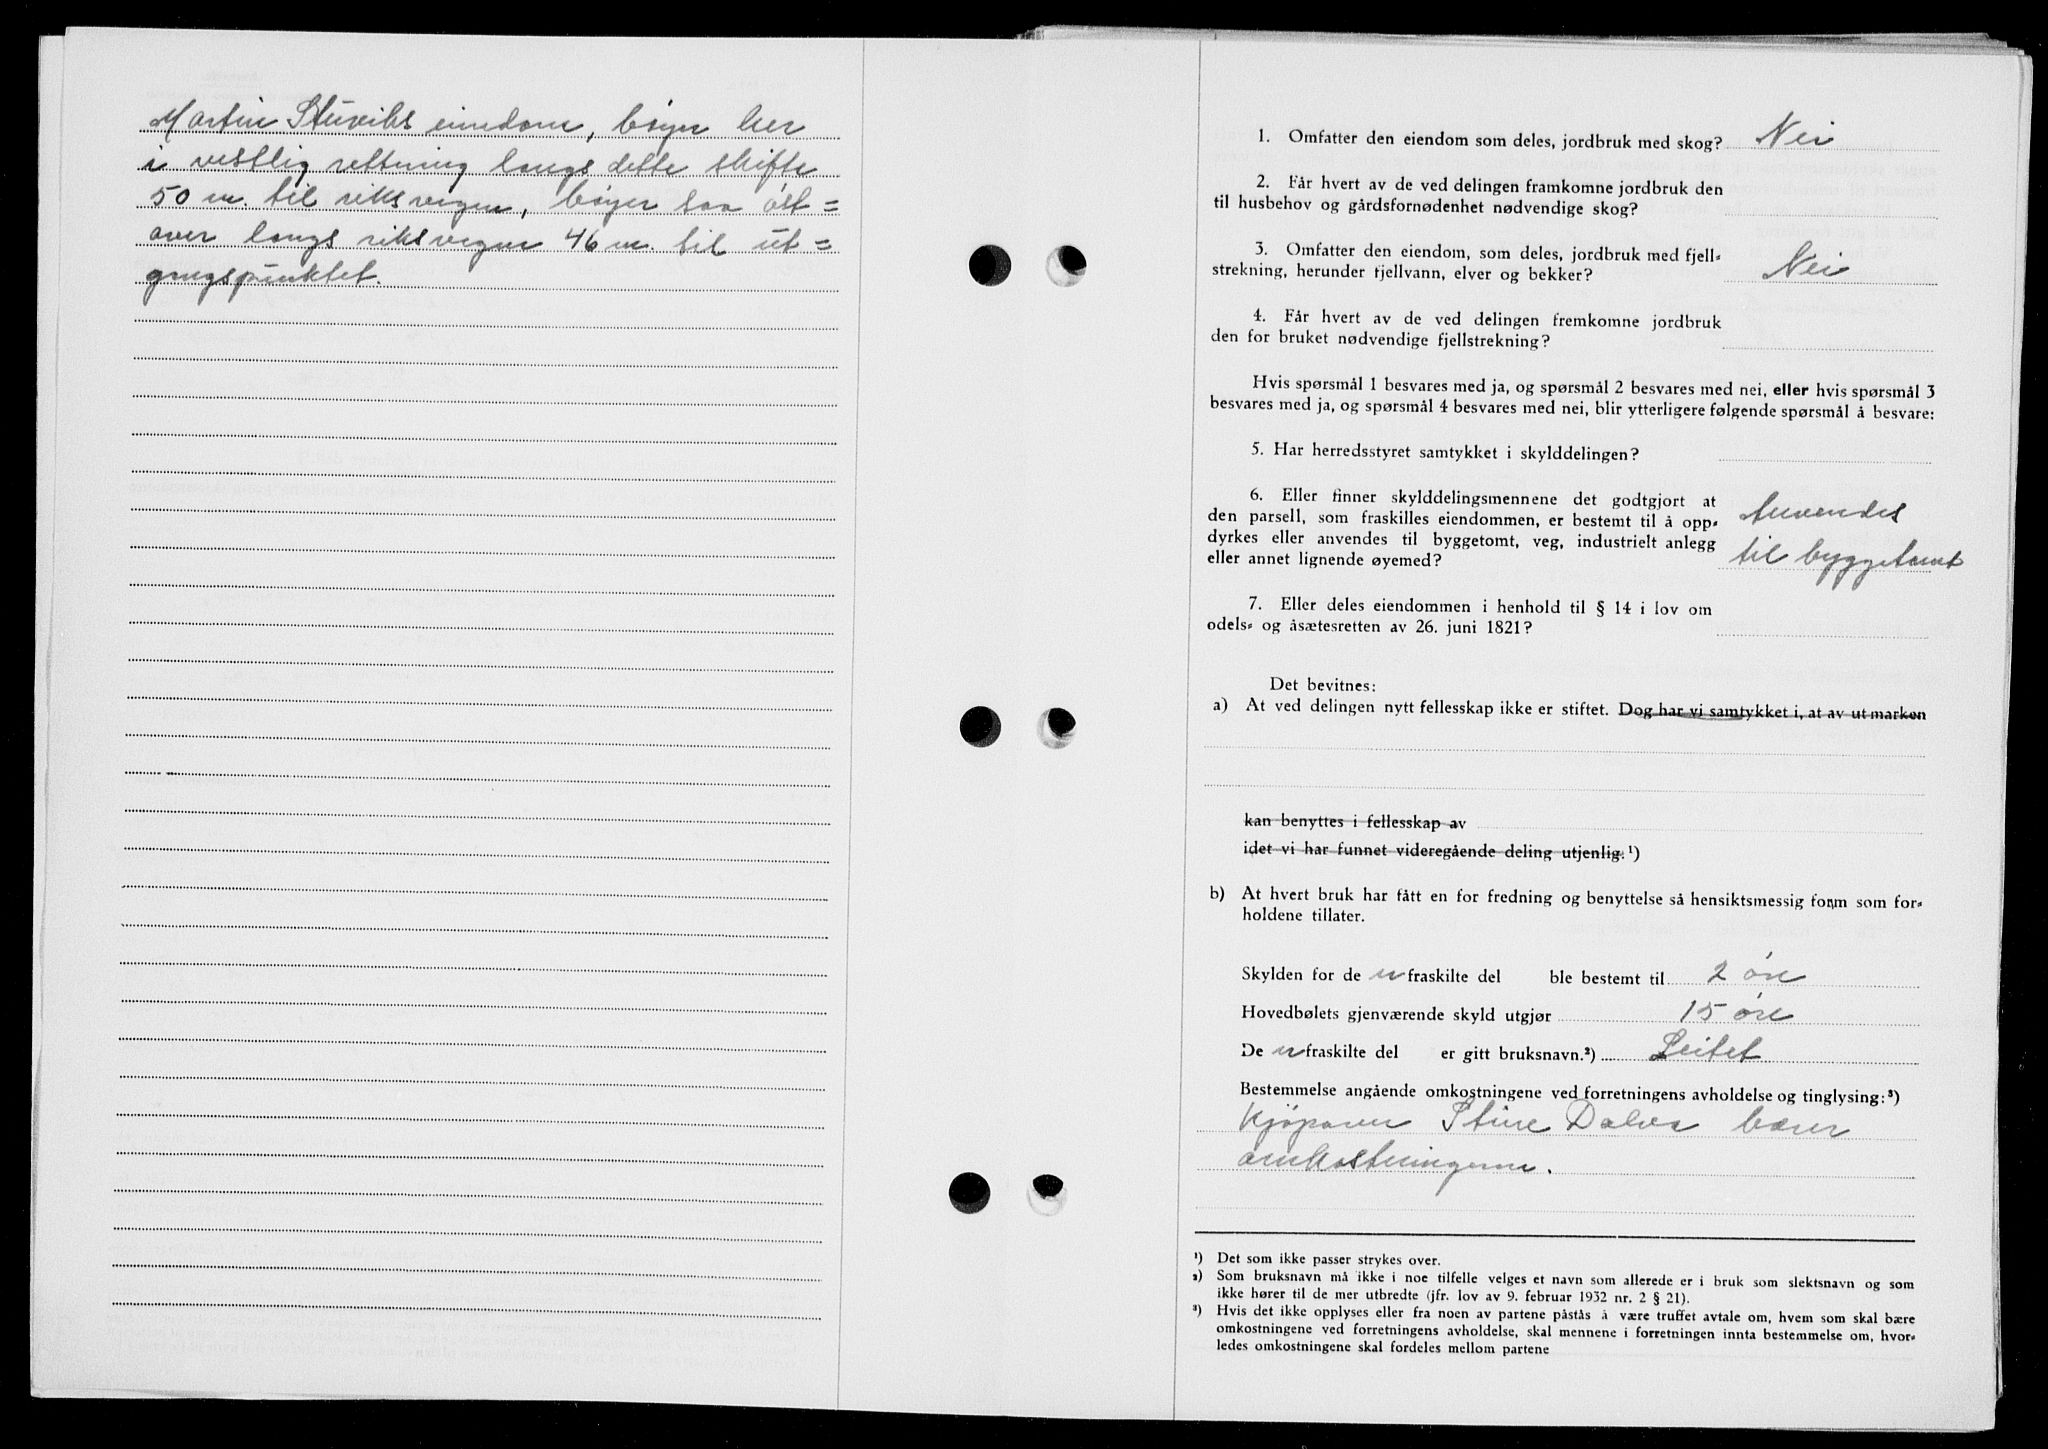 Martin Stuviks eiendom, bøyer her
i vestlig rettning langs dette skifte
50 m. til riksvegen, bøyer saa øst=
over langs riksvegen 46 m. til ut=
gangspunktet.
1. Omfatter den eiendom som deles, jordbruk med skog? Nei
2. Får hvert av de ved delingen framkomne jordbruk den
til husbehov og gårdsfornødenhet nødvendige skog?
3. Omfatter den eiendom, som deles, jordbruk med fjell=
strekning, herunder fjellvann, elver og bekker? Nei
4. Får hvert av de ved delingen fremkomne jordbruk
den for bruket nødvendige fjellstrekning?
Hvis spørsmål 1 besvares med ja, og spørsmål 2 besvares med nei, eller hvis spørsmål 3
besvares med ja, og spørsmål 4 besvares med nei, blir ytterligere følgende spørsmål å besvare:
5. Har herredsstyret samtykket i skylddelingen?
6. Eller finner skylddelingsmennene det godtgjort at
den parsell, som fraskilles eiendommen, er bestemt til å opp= Anvendes
dyrkes eller anvendes til byggetomt, veg, industrielt anlegg
eller annet lignende øyemed? til byggetomt
7. Eller deles eiendommen i henhold til § 14 i lov om
odels= og åsætesretten av 26. juni 1821?
Det bevitnes:
a) At ved delingen nytt fellesskap ikke er stiftet. Dog har vi samtykket i, at av utmarken
kan benyttes i fellesskap av
idet vi har funnet videregående deling utjenlig.¹)
b) At hvert bruk har fått en for fredning og benyttelse så hensiktsmessig form som for=
holdene tillater.
Skylden for de n fraskilte del ble bestemt til 2 øre
Hovedbølets gjenværende skyld utgjør 15 øre
De n fraskilte del er gitt bruksnavn.²) Leitet
Bestemmelse angående omkostningene ved forretningens avholdelse og tinglysing:³)
Kjøperen Stine Dalva bærer
omkostningene.
¹) Det som ikke passer strykes over.
²) Som bruksnavn må ikke i noe tilfelle velges et navn som allerede er i bruk som slektsnavn og som
ikke hører til de mer utbredte (jfr. lov av 9. februar 1932 nr. 2 § 21).
³) Hvis det ikke opplyses eller fra noen av partene påstås å være truffet avtale om, hvem som skal bære
omkostningene ved forretningens avholdelse, skal mennene i forretningen innta bestemmelse om, hvor=
ledes omkostningene skal fordeles mellom partene